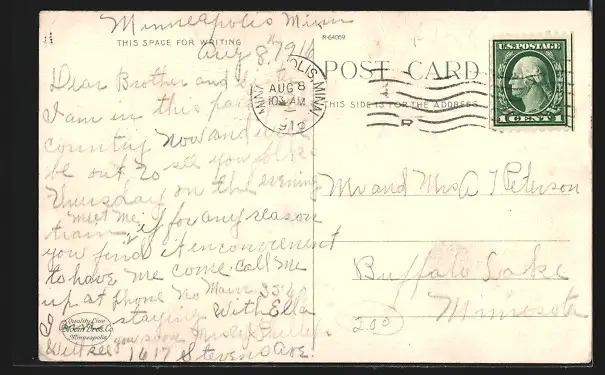 Minneapolis Minn
THIS SPACE FOR WRITING
Aug 8, 1916
Dear Brother and
I am in this part
country now and
be out to see you
Thursday on the evening
train, meet me, if for any reason
you find it inconvenient
to have me come. Call me
up at phone No Main
I staying with Ella
Will see you soon
1617 Stevens Ave.
Quality Line
Bloom Bros. Co.
Minneapolis
R-64069
POST CARD
THIS SIDE IS FOR THE ADDRESS
MINNEAPOLIS, MINN.
AUG 8
10 30 AM
U.S. POSTAGE
1 CENT 1
Mr and Mrs A T Peterson
Buffalo Lake
Minnesota
2.00